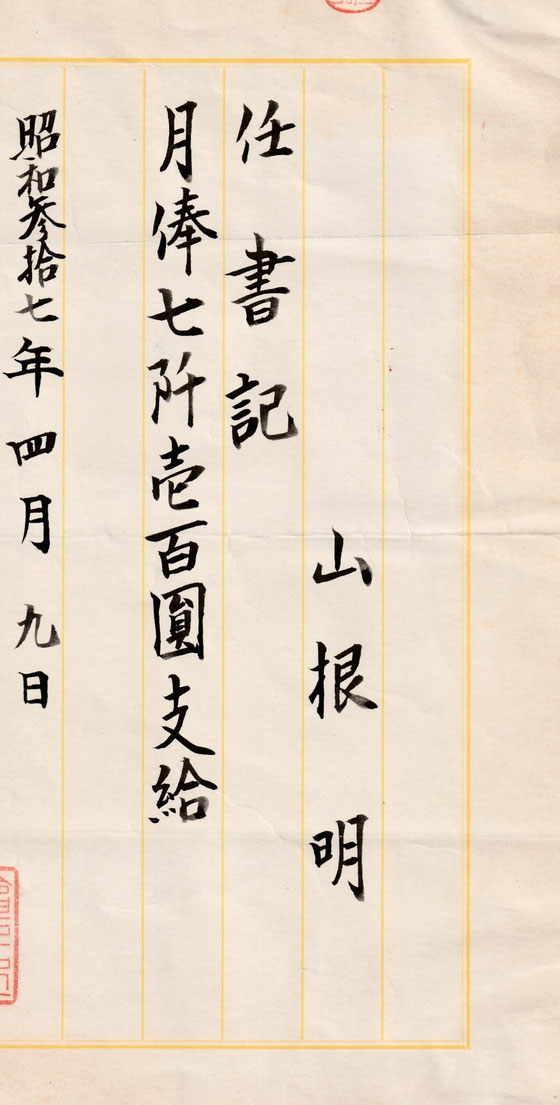 山根明
任書記
月俸七阡壱百圓支給
昭和参拾七年四月九日